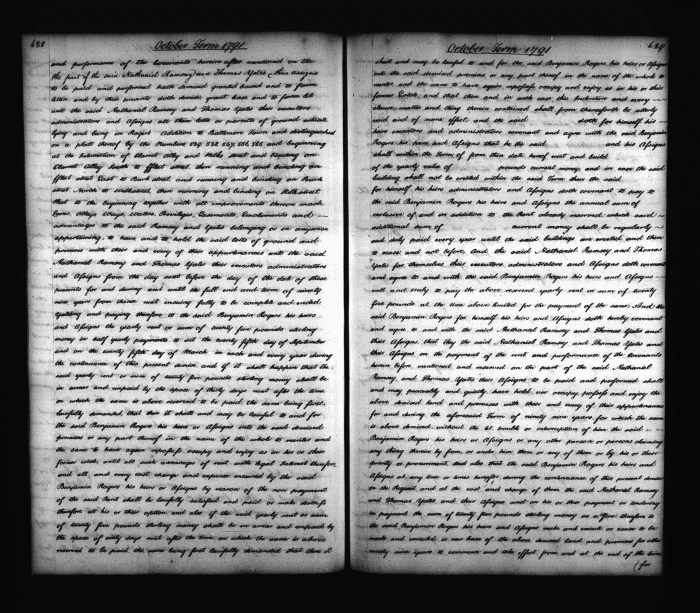 628
October Term 1791
and performance of the Covenants herein after mentioned on the
the part of the said Nathaniel Ramsey and Thomas Yates their assigns
to be paid and performed hath demised granted leased and to farm
letten and by these presents doth demise grant lease and to farm let
unto the said Nathaniel Ramsey and Thomas Yates their executors
administrators and Assigns all them lotts or parcels of ground situate
lying and being in Rogers Addition to Baltimore Town and distinguished
on a platt thereof by the Numbers and beginning
at the intersection of Alley and street and bounding on
Alley South to street then running and bounding on
street East to Bank street and running and bounding on Bank
street North to then running and bounding on
West to the beginning together with all improvements thereon made
Lanes Alleys Ways Waters Priviliges Easements Emoluments and
advantages to the said Ramsey and Yates belonging or in anywise
appertaining, to have and to hold the said lotts of ground and
premises with their and every of their appurtenances unto the said
Nathaniel Ramsey and Thomas Yates their executors administrators
and Assigns from the day next before the day of the date of these
presents for and during and until the full end and term of ninety
nine years from thence next ensuing fully to be complete and ended
Yielding and paying therefor to the said Benjamin Rogers his heirs
and Assigns the yearly rent or sum of twenty five pounds sterling
money in half yearly payments to wit the twenty fifth day of September
and on the twenty fifth day of March in each and every year during
the continuance of this present demise and if it shall happen that the
said yearly rent or sum of twenty five pounds sterling money shall be
in arrear and unpaid by the space of thirty days next after the time
on which the same is above reserved to be paid, the same being first
lawfully demanded that then it shall and may be lawful to and for
the said Benjamin Rogers his heirs or Assigns into the said demised
premises or any part thereof in the name of the whole to reenter and
the same to have again repossess occupy and enjoy as in his or their
former estate until all such arrearages of rent with legal Interest therefor
and all and every cost charge and expence incurred by the said
Benjamin Rogers his heirs or Assigns by reason of the non payment
of the said Rent shall be lawfully satisfied and paid or make distress
therefor at his or their option and also if the said yearly rent or sum
of twenty five pounds sterling money shall be in arrear and unpaid by
the space of sixty days next after the time on which the same is above
reserved to be paid the same being first lawfully demanded that then it
629
October Term 1791
shall and may be lawful to and for the said Benjamin Rogers his heirs or Assigns
into the said demised premises or any part thereof in the name of the whole to
reenter and the same to have again repossess occupy and enjoy as in his or their
former Estate, and that then and in such case this Indenture and every
clause matter and thing therein contained shall from thenceforth be utterly
void and of none effect, and the said doth for himself his
heirs executors and administrators covenant and agree with the said Benjamin
Rogers his heirs and Assigns that he the said and his Assigns
shall within the Term of from the date hereof erect and build
of the yearly value of pounds current money, and in case the said
building shall not be erected within the said Term then the said
for himself his heirs administrators and Assigns doth covenant to pay to
the said Benjamin Rogers his heirs and Assigns the annual sum of
inclusive of and in addition to the Rent already reserved, which said
additional sum of current money shall be regularly
and duly paid every year until the said buildings are erected and then
to cease and not before. And the said Nathaniel Ramsey and Thomas
Yates for themselves their executors administrators and Assigns doth covenant
and agree to and with the said Benjamin Rogers his heirs and Assigns
well and truly to pay the above reserved yearly rent or sum of twenty
five pounds at the time above limited for the payment of the same. And the
said Benjamin Rogers for himself his heirs and Assigns doth hereby covenant
and agree to and with the said Nathaniel Ramsey and Thomas Yates and
their Assigns that they the said Nathaniel Ramsey and Thomas Yates and
their Assigns on the payment of the rent and performance of the Covenants
herein before rendered and reserved on the part of the said Nathaniel
Ramsey and Thomas Yates their Assigns to be paid and performed shall
and may peaceably and quietly have hold use occupy possess and enjoy the
above demised land and premises with their and every of their appurtenances
for and during the aforesaid Term of ninety nine years for which the same
is above demised without the let trouble or interruption of him the said
Benjamin Rogers his heirs or Assigns or any other person or persons claiming
any thing therein by from or under him them or any of them or by his or their
privity or procurement And also that the said Benjamin Rogers his heirs and
Assigns at any time or times during the continuance of this present demise
on the Request and at the cost and charge of them the said Nathaniel Ramsey
and Thomas Yates and their Assigns and on his or their payment or tendering
in payment the sum of twenty five pounds sterling money as a fine therefor to
the said Benjamin Rogers his heirs and Assigns make and execute or cause to be
made and executed a new lease of the above demised land and premises for other
ninety nine years to commence and take effect from and at the end of the term
(for